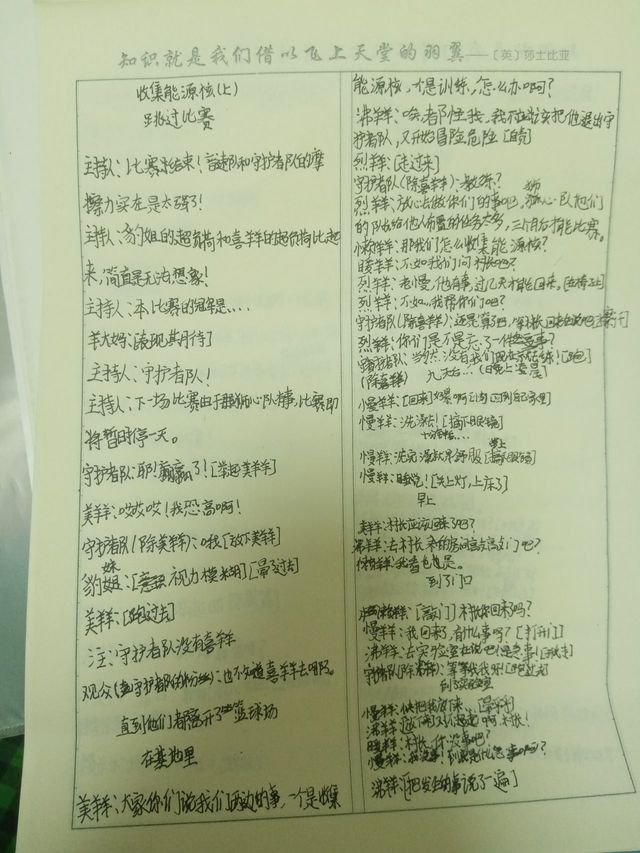 知识就是我们借以飞上天堂的羽翼——〔英〕莎士比亚
收集能源核(上)
跳过比赛
主持人:比赛结束!言速队和守护者队的摩
擦力实在是太强了!
主持人:豹姐的超负荷和喜羊羊的超负荷比起
来,简直是无法想象!
主持人:本比赛的冠军是....
羊大妈:[表现其期待]
主持人:守护者队!
主持人:下一场比赛由于那狮心队棒,比赛即
将暂时停一天。
守护者队:耶!赢了![举起美羊羊]
美羊羊:哎哎哎!我恐高啊!
守护者队(除美羊羊):哦[放下美羊羊]
豹姐:[视力模糊][晕了过去]
美羊羊:[跑过去]
注:守护者队没有喜羊羊
观众(守护者队的粉丝):也不知道喜羊羊去哪。
直到他们都离开了篮球场
在基地里
美羊羊:大家你们说我们两边的事,一个是收集
能源核,才是训练,怎么办啊?
沸羊羊:唉,都怪我,我不应该把他退出守
护者队,又开始冒险危险[自责]
烈羊羊:[走过来]
守护者队(除喜羊羊):教练?
烈羊羊:放心去做你们的事吧,狮心队把们
的队给他人布置的任务太多,三个月后才能比赛。
懒羊羊:那我们怎么收集能源核?
暖羊羊:不如我们问村长吧?
烈羊羊:老慢,他有事,过几天才能回来,[坐椅子上]
烈羊羊:不如,我帮你们吧?
守护者队(除喜羊羊):还是算了吧,等村长回来
烈羊羊:你们是不是忘了一件事?
守护者队:当然没有我们现在就去练![跑]
(除喜羊羊) 九天后...(白晚上凌晨)
慢羊羊:[回来]好啊回到自家里
慢羊羊:洗澡去![摘下眼镜]
十分钟后....
慢羊羊:洗完澡就是舒服[戴上眼镜]
慢羊羊:睡觉![关上灯,上床了]
早上
美羊羊:村长应该回来了吧?
沸羊羊:去村长的房间敲敲门吧?
懒羊羊:我看也是。
到了门口
[敲门]村长你回来了吗?
慢羊羊:我回来了,有什么事吗?[打开门]
沸羊羊:去实验室在说吧很是急事![跑走]
守护者队(除沸羊羊):等等我呀![跑过去]
到实验室
慢羊羊:快把我放下来..
沸羊羊:放下对不起啊,村长!
暖羊羊:村长,你没事吧?
慢羊羊:我没事!到底是什么急事啊?
沸羊羊:[把发生的事说了一遍]